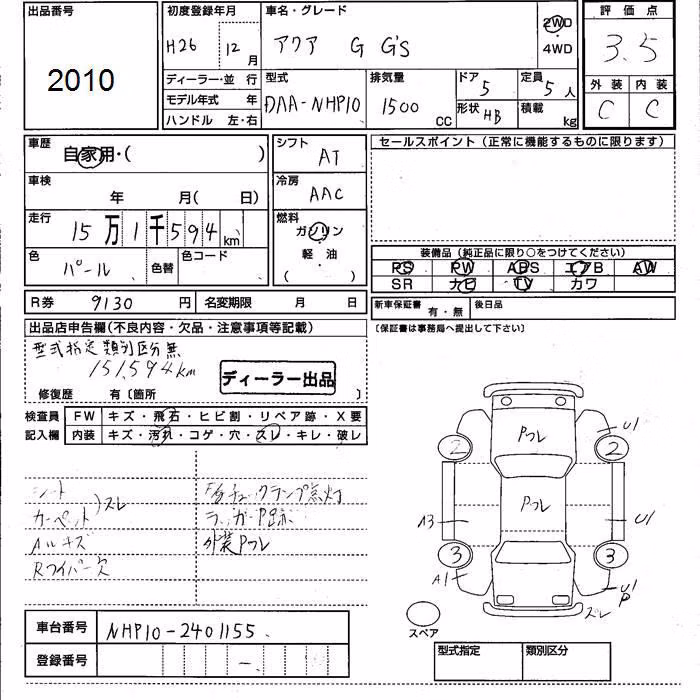 出品番号
2010
初度登録年月
H26 12月
車名・グレード
アクア G G's
2WD
4WD
評価点
3.5
外装 内装
C C
ディーラー・並行
モデル年式 年
ハンドル 左・右
型式
DAA-NHP10
排気量
1500 CC
ドア 5
形状 HB
定員 5人
積載 kg
車歴
自家用・( )
シフト
AT
セールスポイント(正常に機能するものに限ります)
車検
年 月( 日)
冷房
AAC
走行
15万1千594km
燃料
ガソリン
軽・油
( )
色
パール
色替
色コード
装備品(純正品に限り○をつけてください)
PS PW ABS エアB AW
SR ナビ TV カワ
R券 9130円 名変期限 月 日
新車保証書 有・無 後日品
(保証書は事務局へ提出して下さい)
出品店申告欄(不良内容・欠品・注意事項等記載)
型式指定類別区分無
151,594km
ディーラー出品
修復歴 有〔箇所 〕
検査員
記入欄
FW キズ・飛石・ヒビ割・リペア跡・X要
内装 キズ・汚れ・コゲ・穴・スレ・キレ・破レ
シート
カーペット)スレ
Aルキズ
Rワイパー欠
ランガーP跡
外装Pフレ
Pフレ
Pフレ
U1
2 2
A3
U1
3 3
A1
U1
P
スレ
スペア
車台番号 NHP10-2401155
登録番号 -
型式指定 類別区分